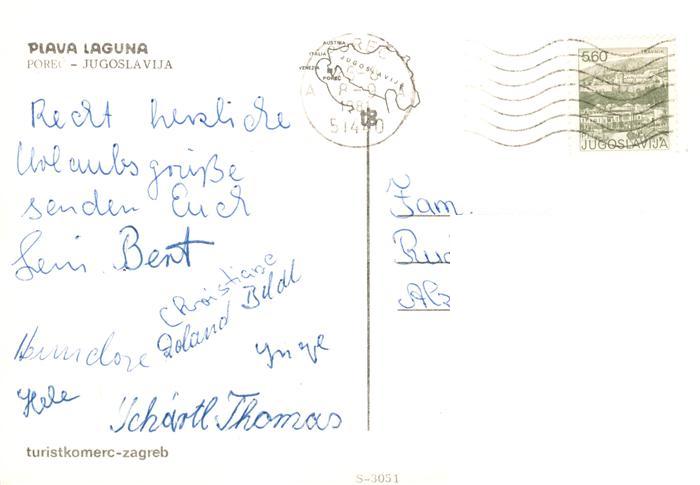 PLAVA LAGUNA
POREČ - JUGOSLAVIJA
Recht herzliche
Urlaubsgrüße
senden Euch
Bert
Christiane
Roland
Schärtl Thomas
turistkomerc-zagreb
S-3051
AUSTRIA
ITALIA
VENEZIA
POREČ
JUGOSLAVIJA
1981
51440
5,60
TRAVNIK
JUGOSLAVIJA
Fam.